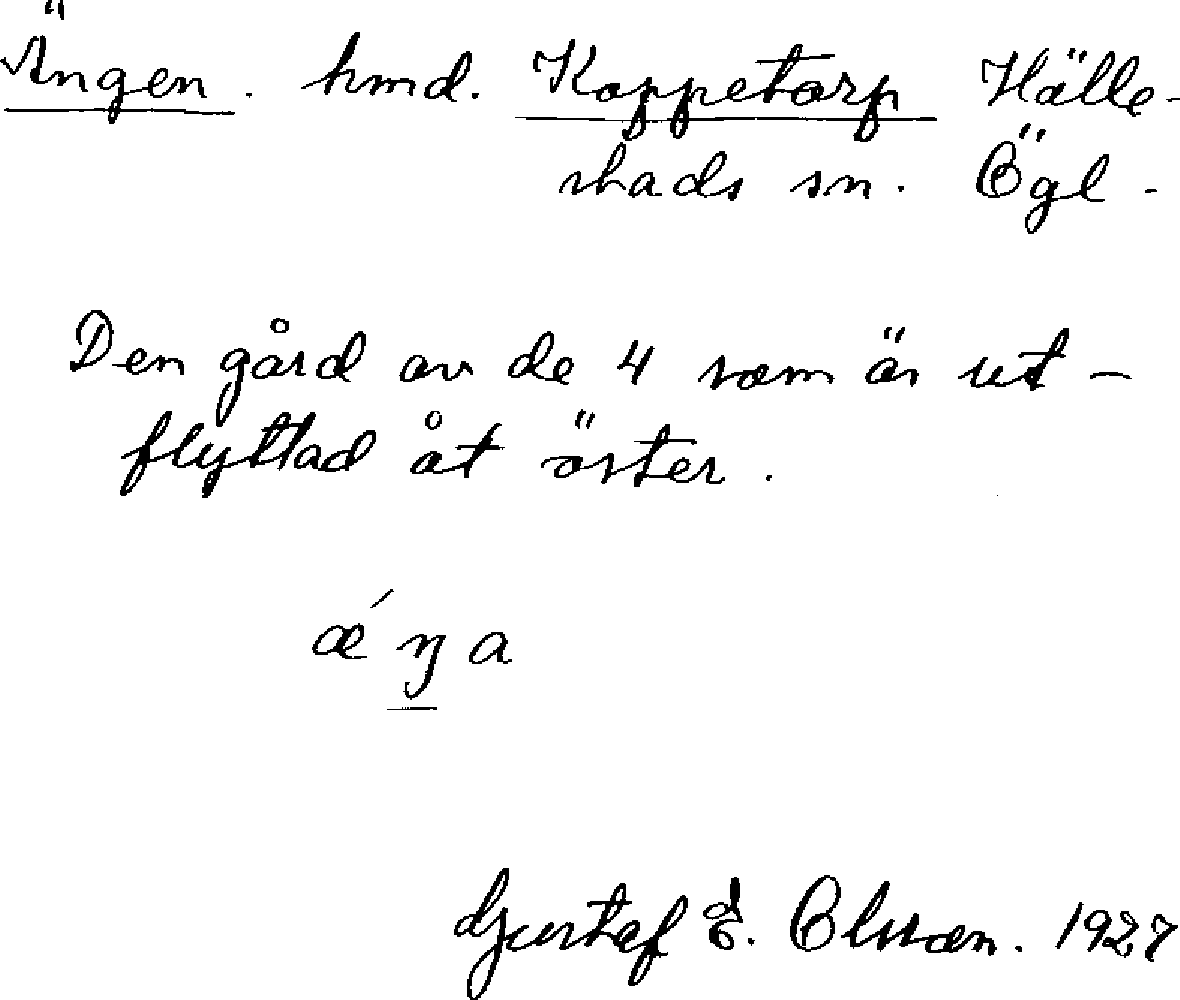 Ängen. hmd. Koppetorp Hälle-
stads sn. Ögl -
Den gård av de 4 som är ut -
flyttad åt öster.
ǽ ŋ a
Gustaf E. Olsson. 1927